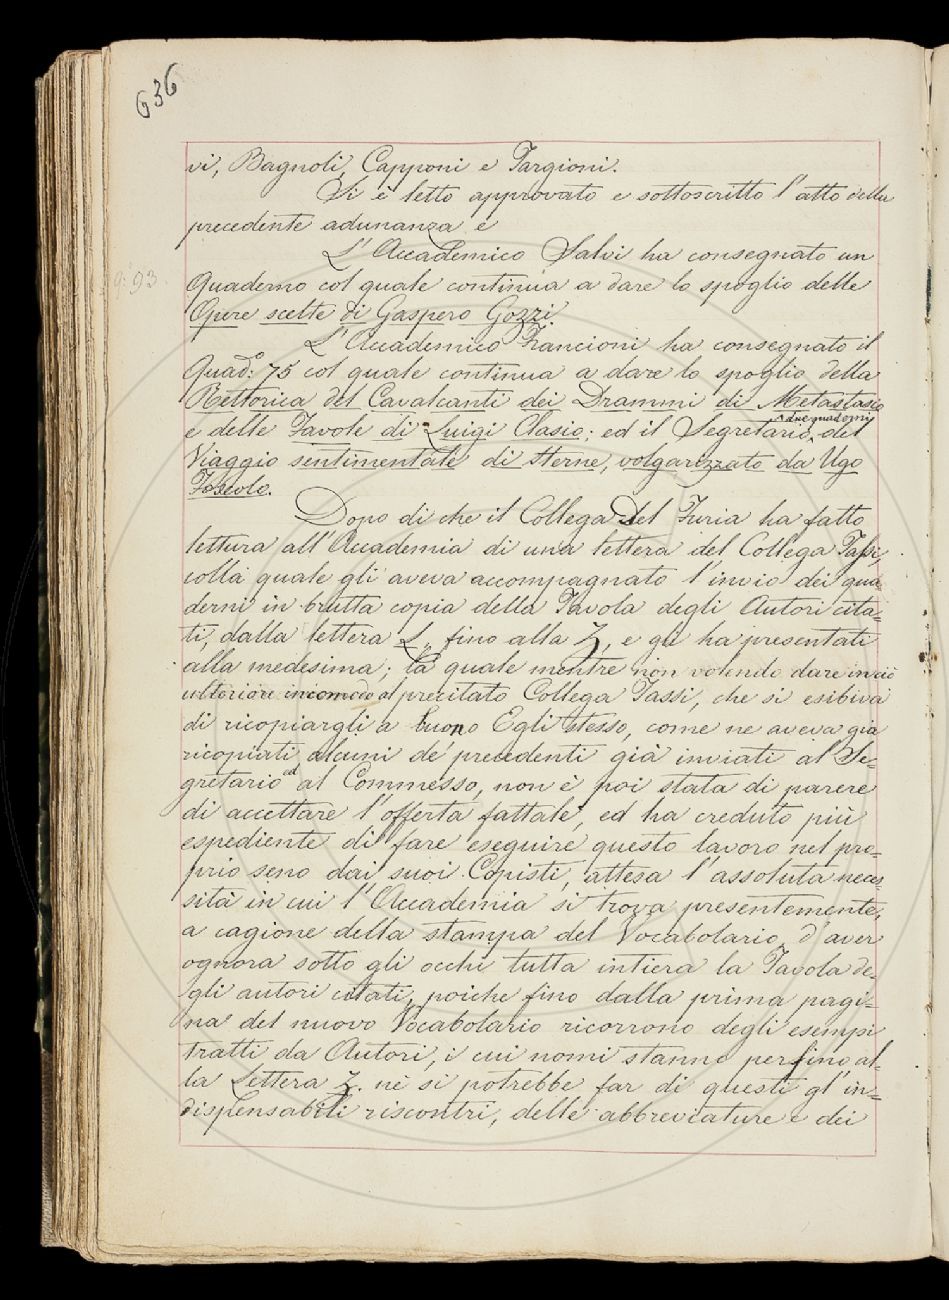 636
vi, Bagnoli, Capponi e Targioni.
Si è letto approvato e sottoscritto l'atto della
precedente adunanza e
L'Accademico Salvi ha consegnato un
Quaderno col quale continua a dare lo spoglio delle
Opere scelte di Gaspero Gozzi.
L'Accademico Francioni ha consegnato il
Quad.º 75 col quale continua a dare lo spoglio della
Rettorica del Cavalcanti dei Drammi di Metastasio
e delle Favole di Luigi Clasio; ed il Segretario due quaderni del
Viaggio sentimentale di Sterne, volgarizzato da Ugo
Foscolo.
Dopo di che il Collega Del Furia ha fatto
lettura all'Accademia di una lettera del Collega Tassi,
colla quale gli aveva accompagnato l'invio dei qua
derni in brutta copia della Tavola degli Autori cita=
ti, dalla lettera L, fino alla Z, e gli ha presentati
alla medesima; la quale mentre non volendo dare in ciò
ulteriore incomodo al precitato Collega Tassi, che si esibiva
di ricopiargli a buono Egli stesso, come ne aveva già
ricopiati alcuni de' precedenti già inviati al Se=
gretario ed al Commesso, non è poi stata di parere
di accettare l'offerta fattale, ed ha creduto più
espediente di fare eseguire questo lavoro nel pro=
prio seno dai suoi Copisti, attesa l'assoluta neces=
sità in cui l'Accademia si trova presentemente,
a cagione della stampa del Vocabolario, d'aver
ognora sotto gli occhi tutta intiera la Tavola de=
gli autori citati, poiche fino dalla prima pagi=
na del nuovo Vocabolario ricorrono degli esempi
tratti da Autori, i cui nomi stanno perfino al=
la Lettera Z. nè si potrebbe far di questi gl'in=
dispensabili riscontri, delle abbreviature e dei